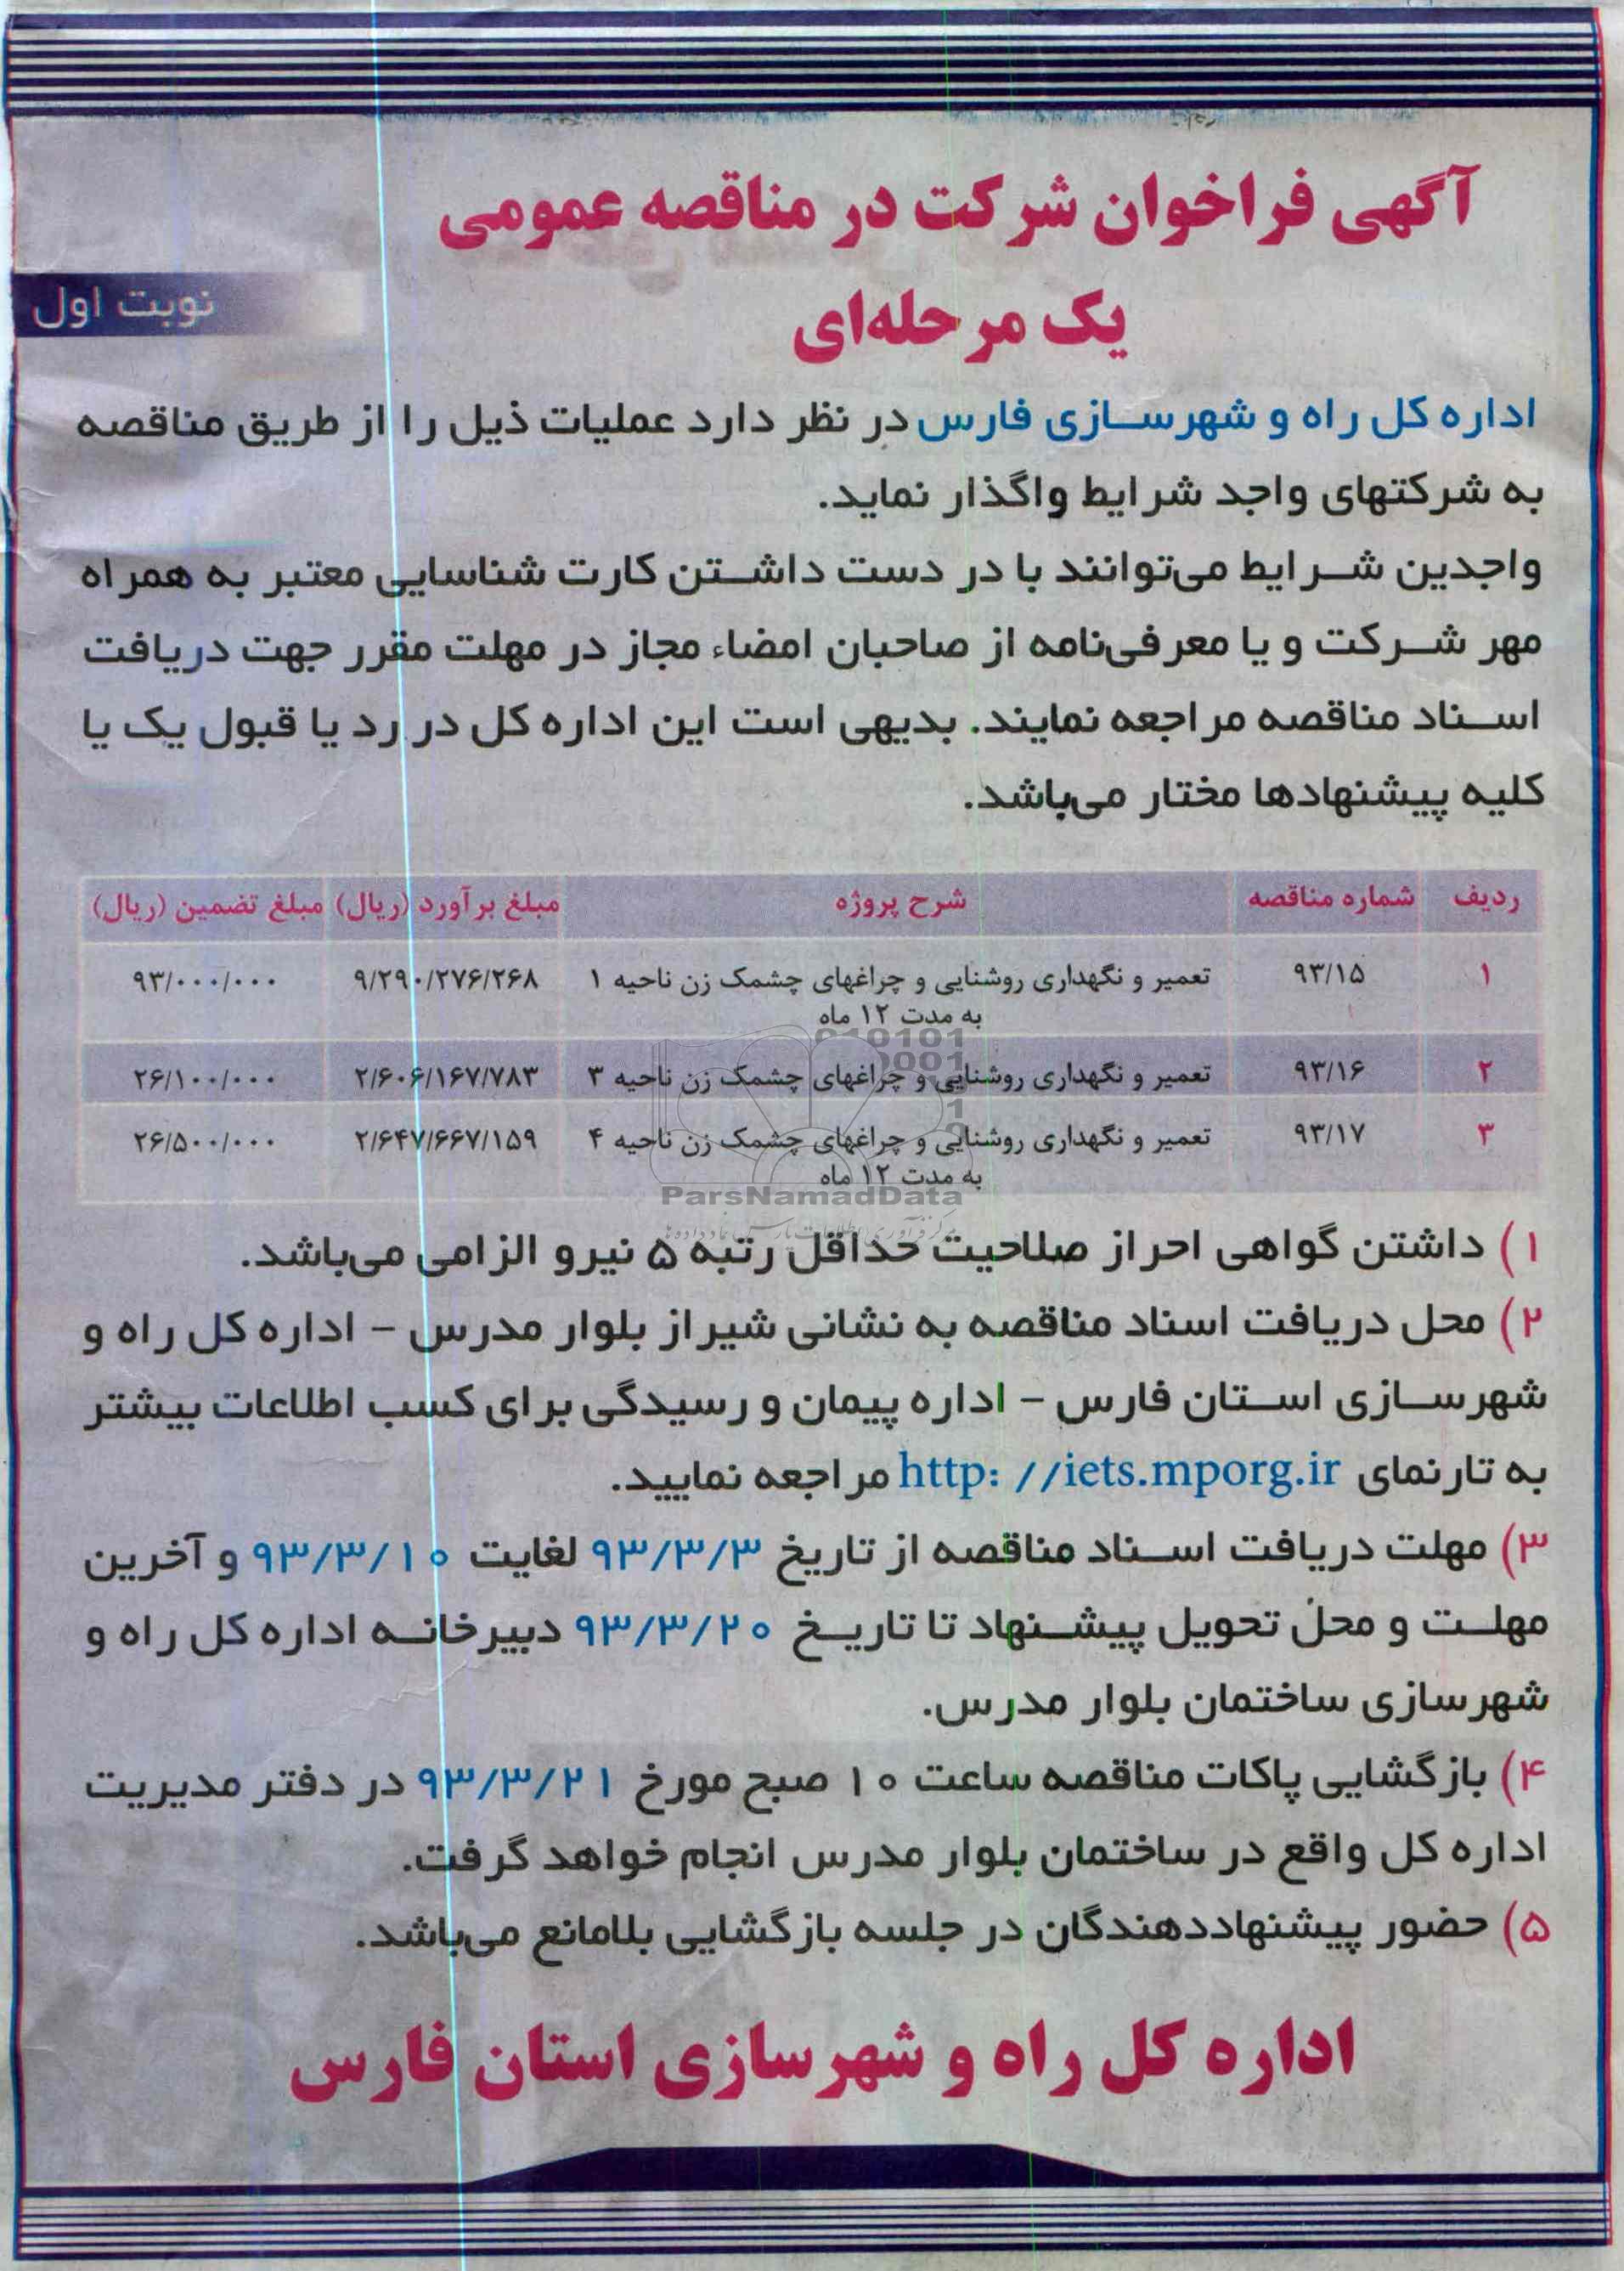 آگهی فراخوان شرکت در مناقصه عمومی
یک مرحله‌ای
نوبت اول
اداره کل راه و شهرسازی فارس در نظر دارد عملیات ذیل را از طریق مناقصه
به شرکتهای واجد شرایط واگذار نماید.
واجدین شرایط می‌توانند با در دست داشتن کارت شناسایی معتبر به همراه
مهر شرکت و یا معرفی‌نامه از صاحبان امضاء مجاز در مهلت مقرر جهت دریافت
اسناد مناقصه مراجعه نمایند. بدیهی است این اداره کل در رد یا قبول یک یا
کلیه پیشنهادها مختار می‌باشد.
ردیف شماره مناقصه شرح پروژه مبلغ برآورد (ریال) مبلغ تضمین (ریال)
۱ ۹۳/۱۵ تعمیر و نگهداری روشنایی و چراغهای چشمک زن ناحیه ۱ ۹/۲۹۰/۲۷۶/۲۶۸ ۹۳/۰۰۰/۰۰۰
به مدت ۱۲ ماه
۲ ۹۳/۱۶ تعمیر و نگهداری روشنایی و چراغهای چشمک زن ناحیه ۳ ۲/۶۰۶/۱۶۷/۷۸۳ ۲۶/۱۰۰/۰۰۰
۳ ۹۳/۱۷ تعمیر و نگهداری روشنایی و چراغهای چشمک زن ناحیه ۴ ۲/۶۴۷/۶۶۷/۱۵۹ ۲۶/۵۰۰/۰۰۰
به مدت ۱۲ ماه
ParsNamadData
۱) داشتن گواهی احراز صلاحیت حداقل رتبه ۵ نیرو الزامی می‌باشد.
۲) محل دریافت اسناد مناقصه به نشانی شیراز بلوار مدرس – اداره کل راه و
شهرسازی استان فارس – اداره پیمان و رسیدگی برای کسب اطلاعات بیشتر
به تارنمای http: //iets.mporg.ir مراجعه نمایید.
۳) مهلت دریافت اسناد مناقصه از تاریخ ۹۳/۳/۳ لغایت ۹۳/۳/۱۰ و آخرین
مهلت و محل تحویل پیشنهاد تا تاریخ ۹۳/۳/۲۰ دبیرخانه اداره کل راه و
شهرسازی ساختمان بلوار مدرس.
۴) بازگشایی پاکات مناقصه ساعت ۱۰ صبح مورخ ۹۳/۳/۲۱ در دفتر مدیریت
اداره کل واقع در ساختمان بلوار مدرس انجام خواهد گرفت.
۵) حضور پیشنهاددهندگان در جلسه بازگشایی بلامانع می‌باشد.
اداره کل راه و شهرسازی استان فارس